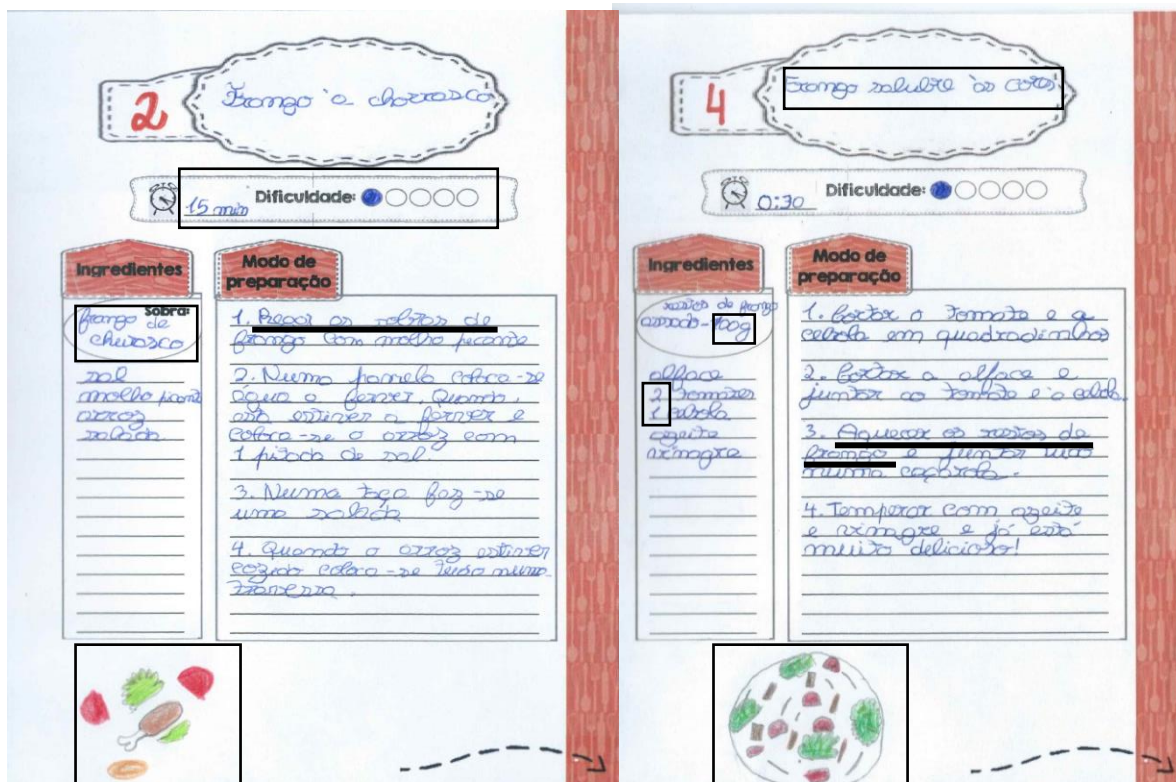 2
Frango à churrasco
15 min
Dificuldade:
Ingredientes
Modo de
preparação
Sobra:
frango de
churrasco
sal
molho picante
arroz
salada
1. Pegar as sobras de
frango com molho picante
2. Numa panela coloca-se
água a ferver. Quando
esta estiver a ferver e
coloca-se o arroz com
1 pitada de sal.
3. Numa taça faz-se
uma salada
4. Quando o arroz estiver
cozido coloca-se tudo numa
travessa.
4
Frango salubre às cores
0:30
Dificuldade:
Ingredientes
Modo de
preparação
restos de frango
assado-100g
alface
2 tomates
1 cebola
azeite
vinagre
1. Cortar o tomate e a
cebola em quadradinhos
2. Cortar a alface e
juntar ao tomate e à cebola.
3. Aquecer os restos de
frango e juntar tudo
numa caçarola.
4. Temperar com azeite
e vinagre e já está
muito delicioso!